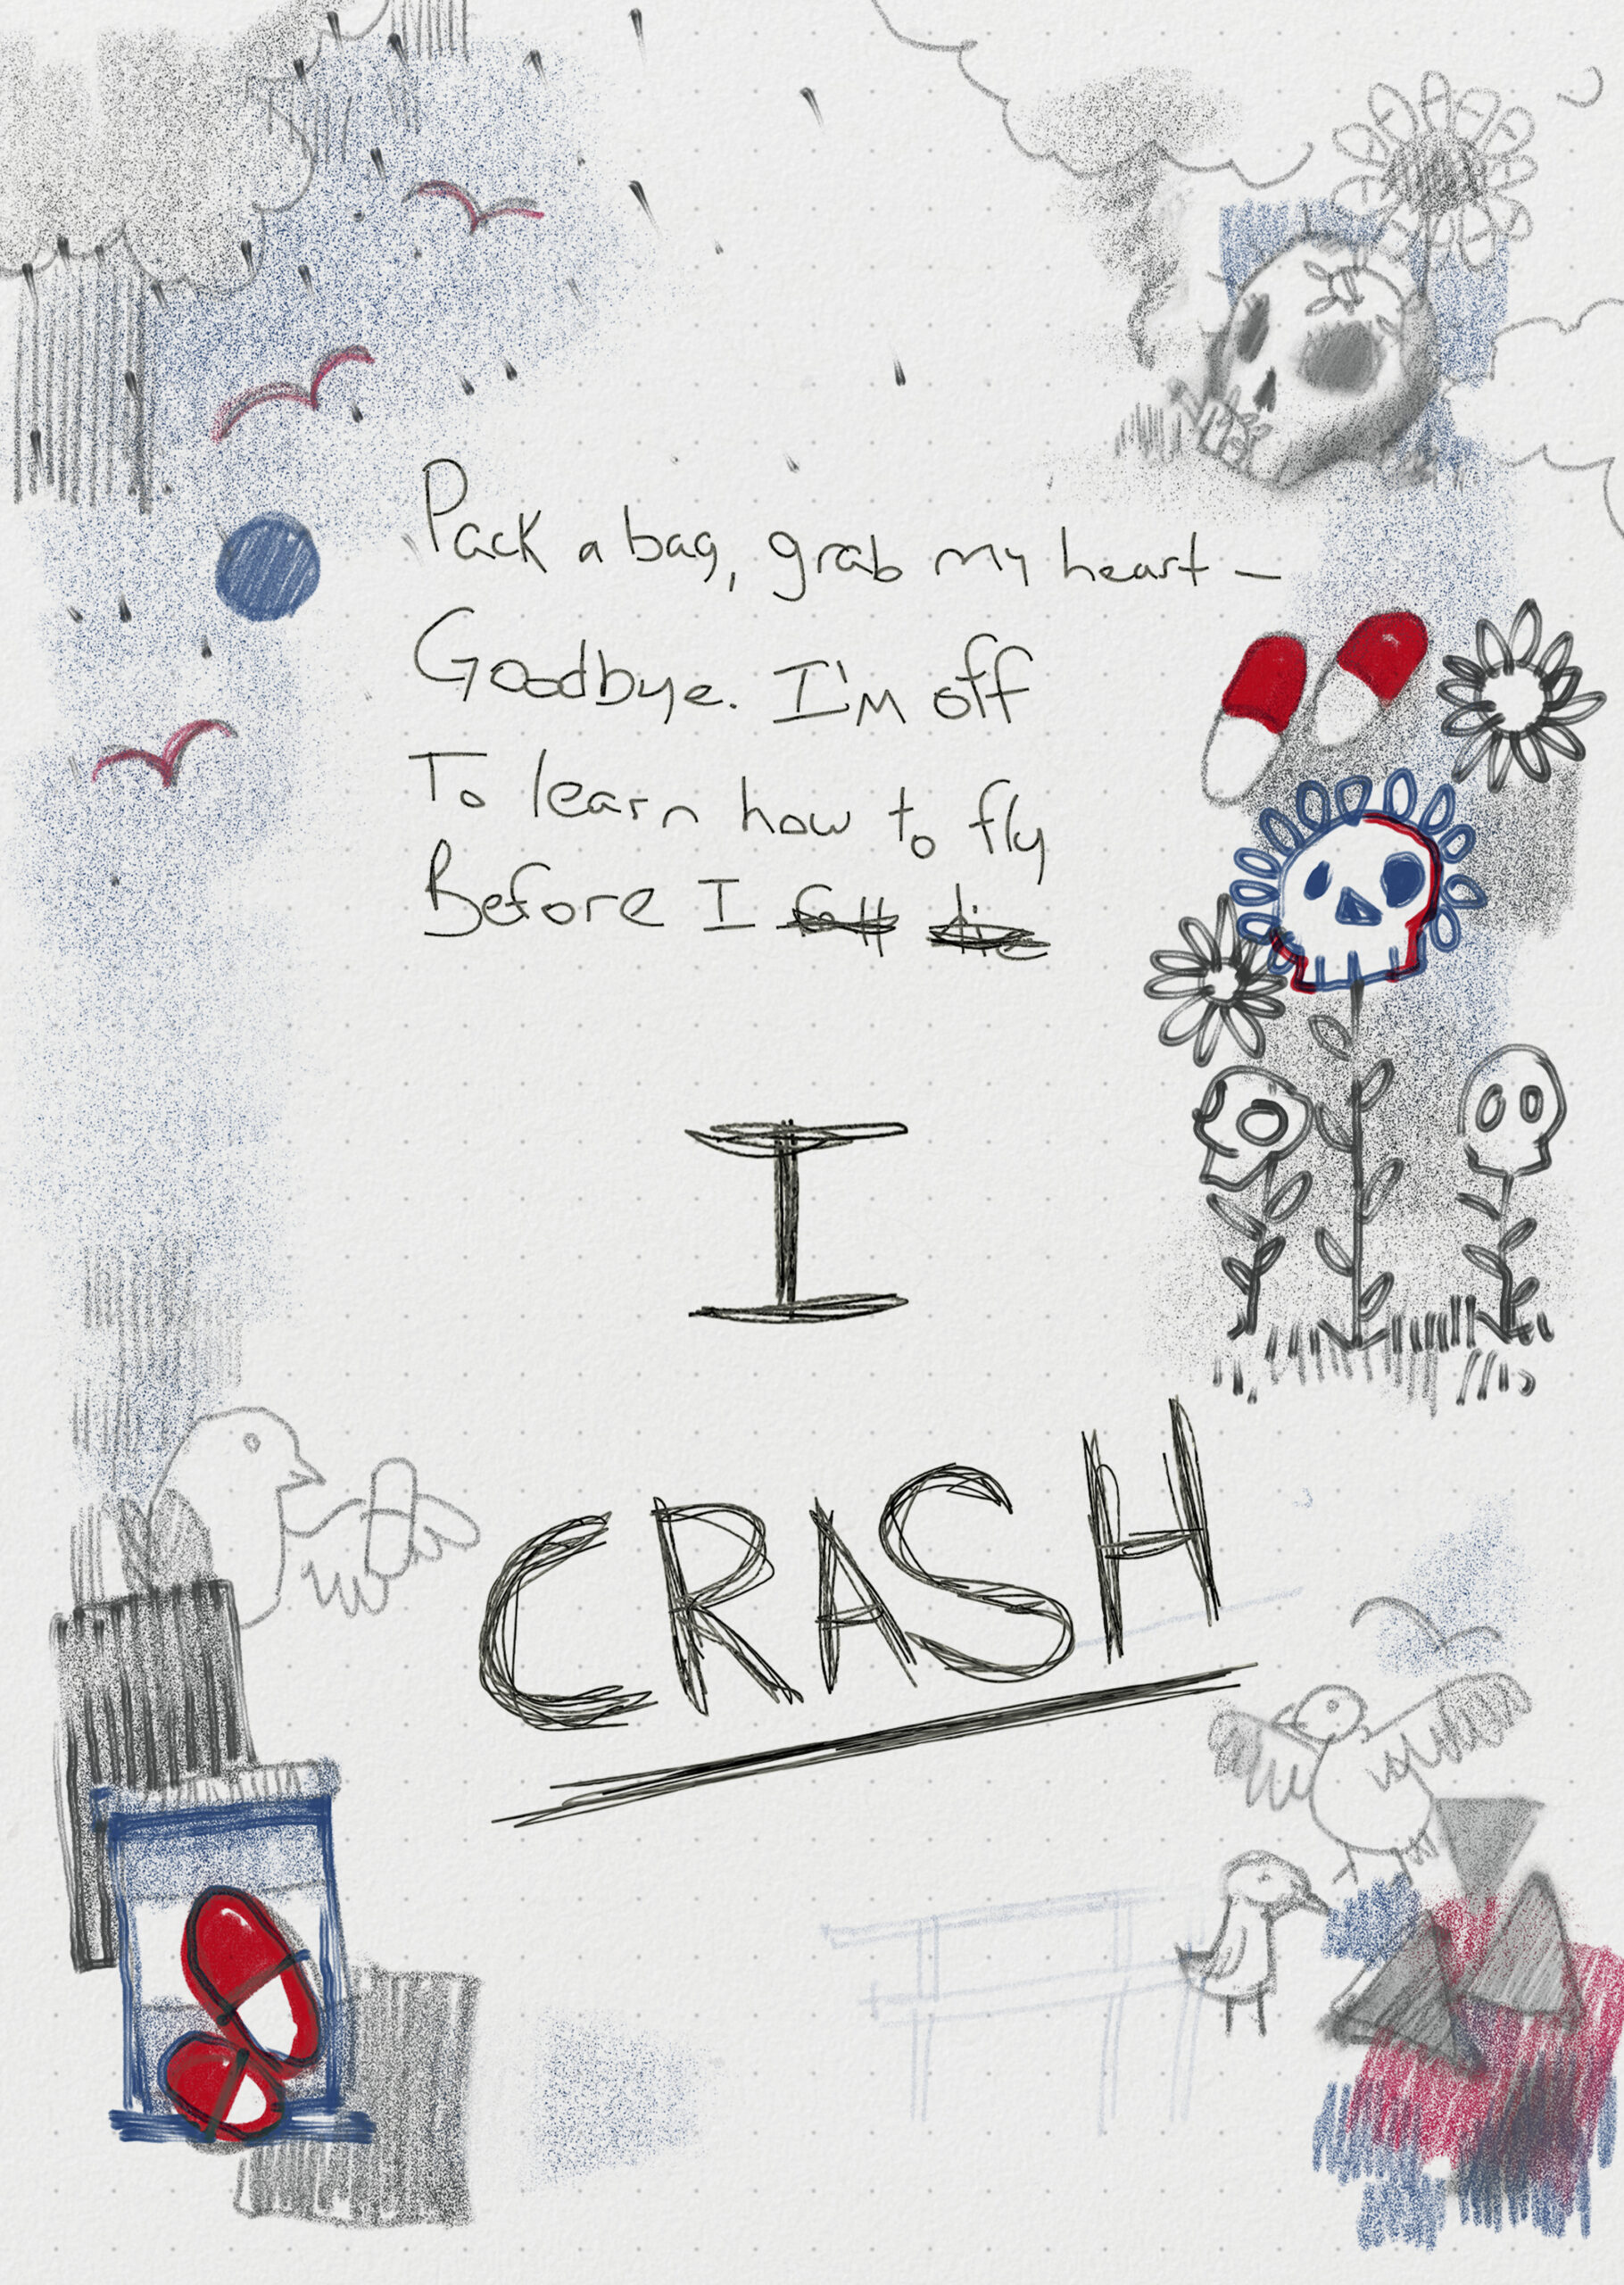 Pack a bag, grab my heart –
Goodbye. I'm off
To learn how to fly
Before I fall die
I
CRASH